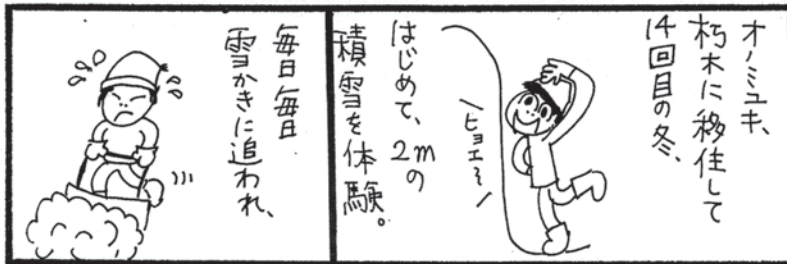 オノミユキ、
朽木に移住して
14回目の冬、
\ヒョエ~/
はじめて、2mの
積雪を体験。
毎日毎日
雪かきに追われ、